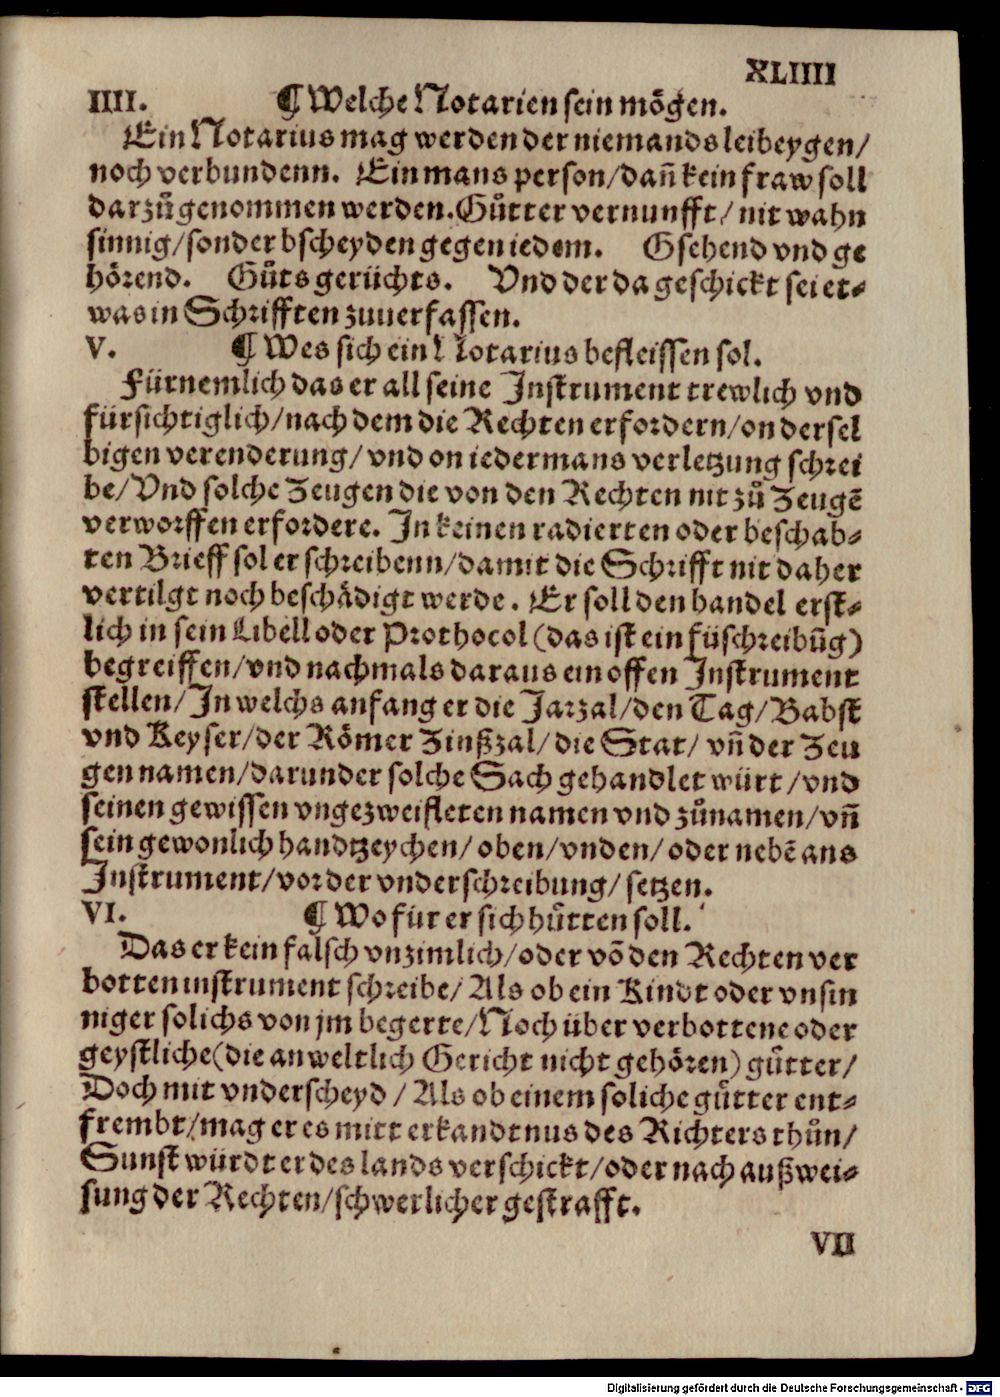 XLIIII
IIII. ¶ Welche Notarien sein mögen.
Ein Notarius mag werden der niemands leibeygen/
noch verbundenn. Ein mans person/dañ kein fraw soll
darzuͦ genommen werden. Guͦtter vernunfft/ nit wahn
sinnig/sonder bscheyden gegen iedem. Gsehend vnd ge
hörend. Guͦts gerüchts. Vnd der da geschickt sei et⸗
was in Schrifften zuuerfassen.
V. ¶ Wes sich ein Notarius befleissen sol.
Fürnemlich das er all seine Instrument trewlich vnd
fürsichtiglich/nach dem die Rechten erfordern/on dersel
bigen verenderung/ vnd on iedermans verletzung schrei
be/Vnd solche Zeugen die von den Rechten nit zuͦ Zeugē
verworffen erfordere. In keinen radierten oder beschab⸗
ten Brieff sol er schreibenn/damit die Schrifft nit daher
vertilgt noch beschädigt werde. Er soll den handel erst⸗
lich in sein Libell oder Prothocol (das ist ein füschreibūg)
begreiffen/vnd nachmals daraus ein offen Instrument
stellen/In welchs anfang er die Jarzal/den Tag/Babst
vnd Keyser/der Römer Zinßzal/die Stat/ vñ der Zeu
gen namen/darunder solche Sach gehandlet würt/vnd
seinen gewissen vngezweifleten namen vnd zuͦnamen/vñ
sein gewonlich handtzeychen/ oben/vnden/ oder nebē ans
Instrument/vor der vnderschreibung/ setzen.
VI. ¶ Wo für er sich hütten soll.
Das er kein falsch vnzimlich/oder vō den Rechten ver
botten instrument schreibe/ Als ob ein Kindt oder vnsin
niger solichs von jm begerte/Noch über verbottene oder
geystliche (die an weltlich Gericht nicht gehören) gütter/
Doch mit vnderscheyd / Als ob einem soliche gütter ent⸗
frembt/mag er es mitt erkandtnus des Richters thuͦn/
Sunst würdt er des lands verschickt/oder nach außwei⸗
sung der Rechten/schwerlicher gestrafft.
VII
Digitalisierung gefördert durch die Deutsche Forschungsgemeinschaft - DFG